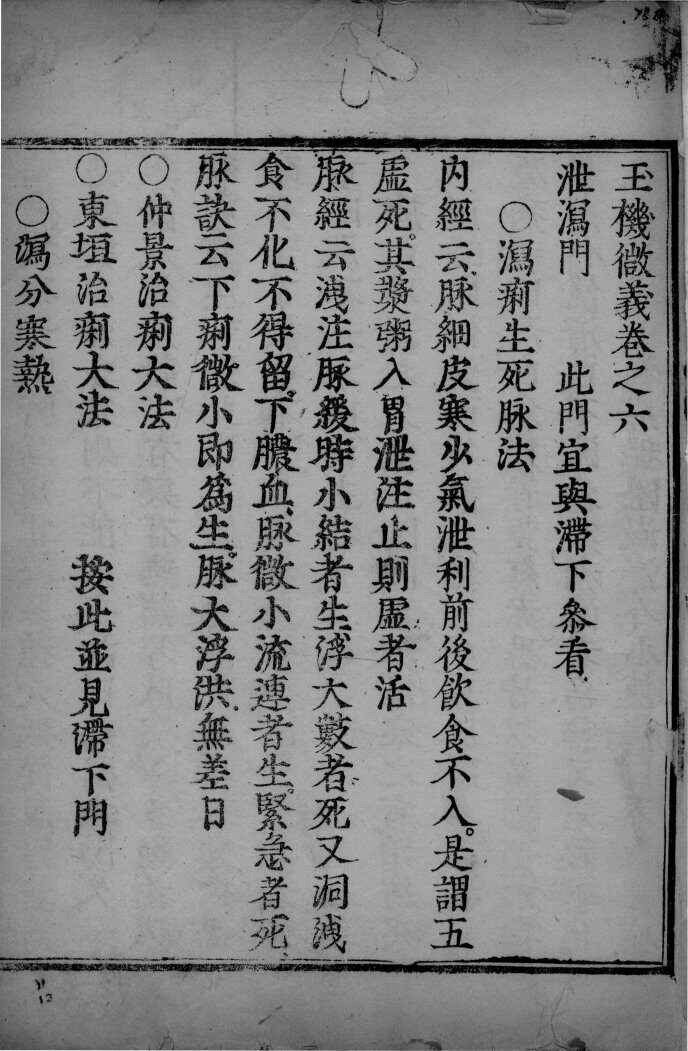 玉機微義卷之六
泄瀉門　此門宜與滯下叅看
○瀉痢生死脉法
内經云脉細皮寒少氣泄利前後飲食不入。是謂五
虛死。其漿粥入胃泄注止則虛者活
脉經云洩注脉緩時小結者生浮大數者死又洞洩
食不化不得留下膿血脉微小流連者生緊急者死
脉訣云下痢微小即爲生脉大浮洪無差日
○仲景治痢大法
○東垣治痢大法　按此並見滯下門
○瀉分寒熱